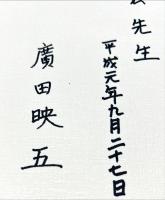 先生
平成元年九月二十七日
廣田映五